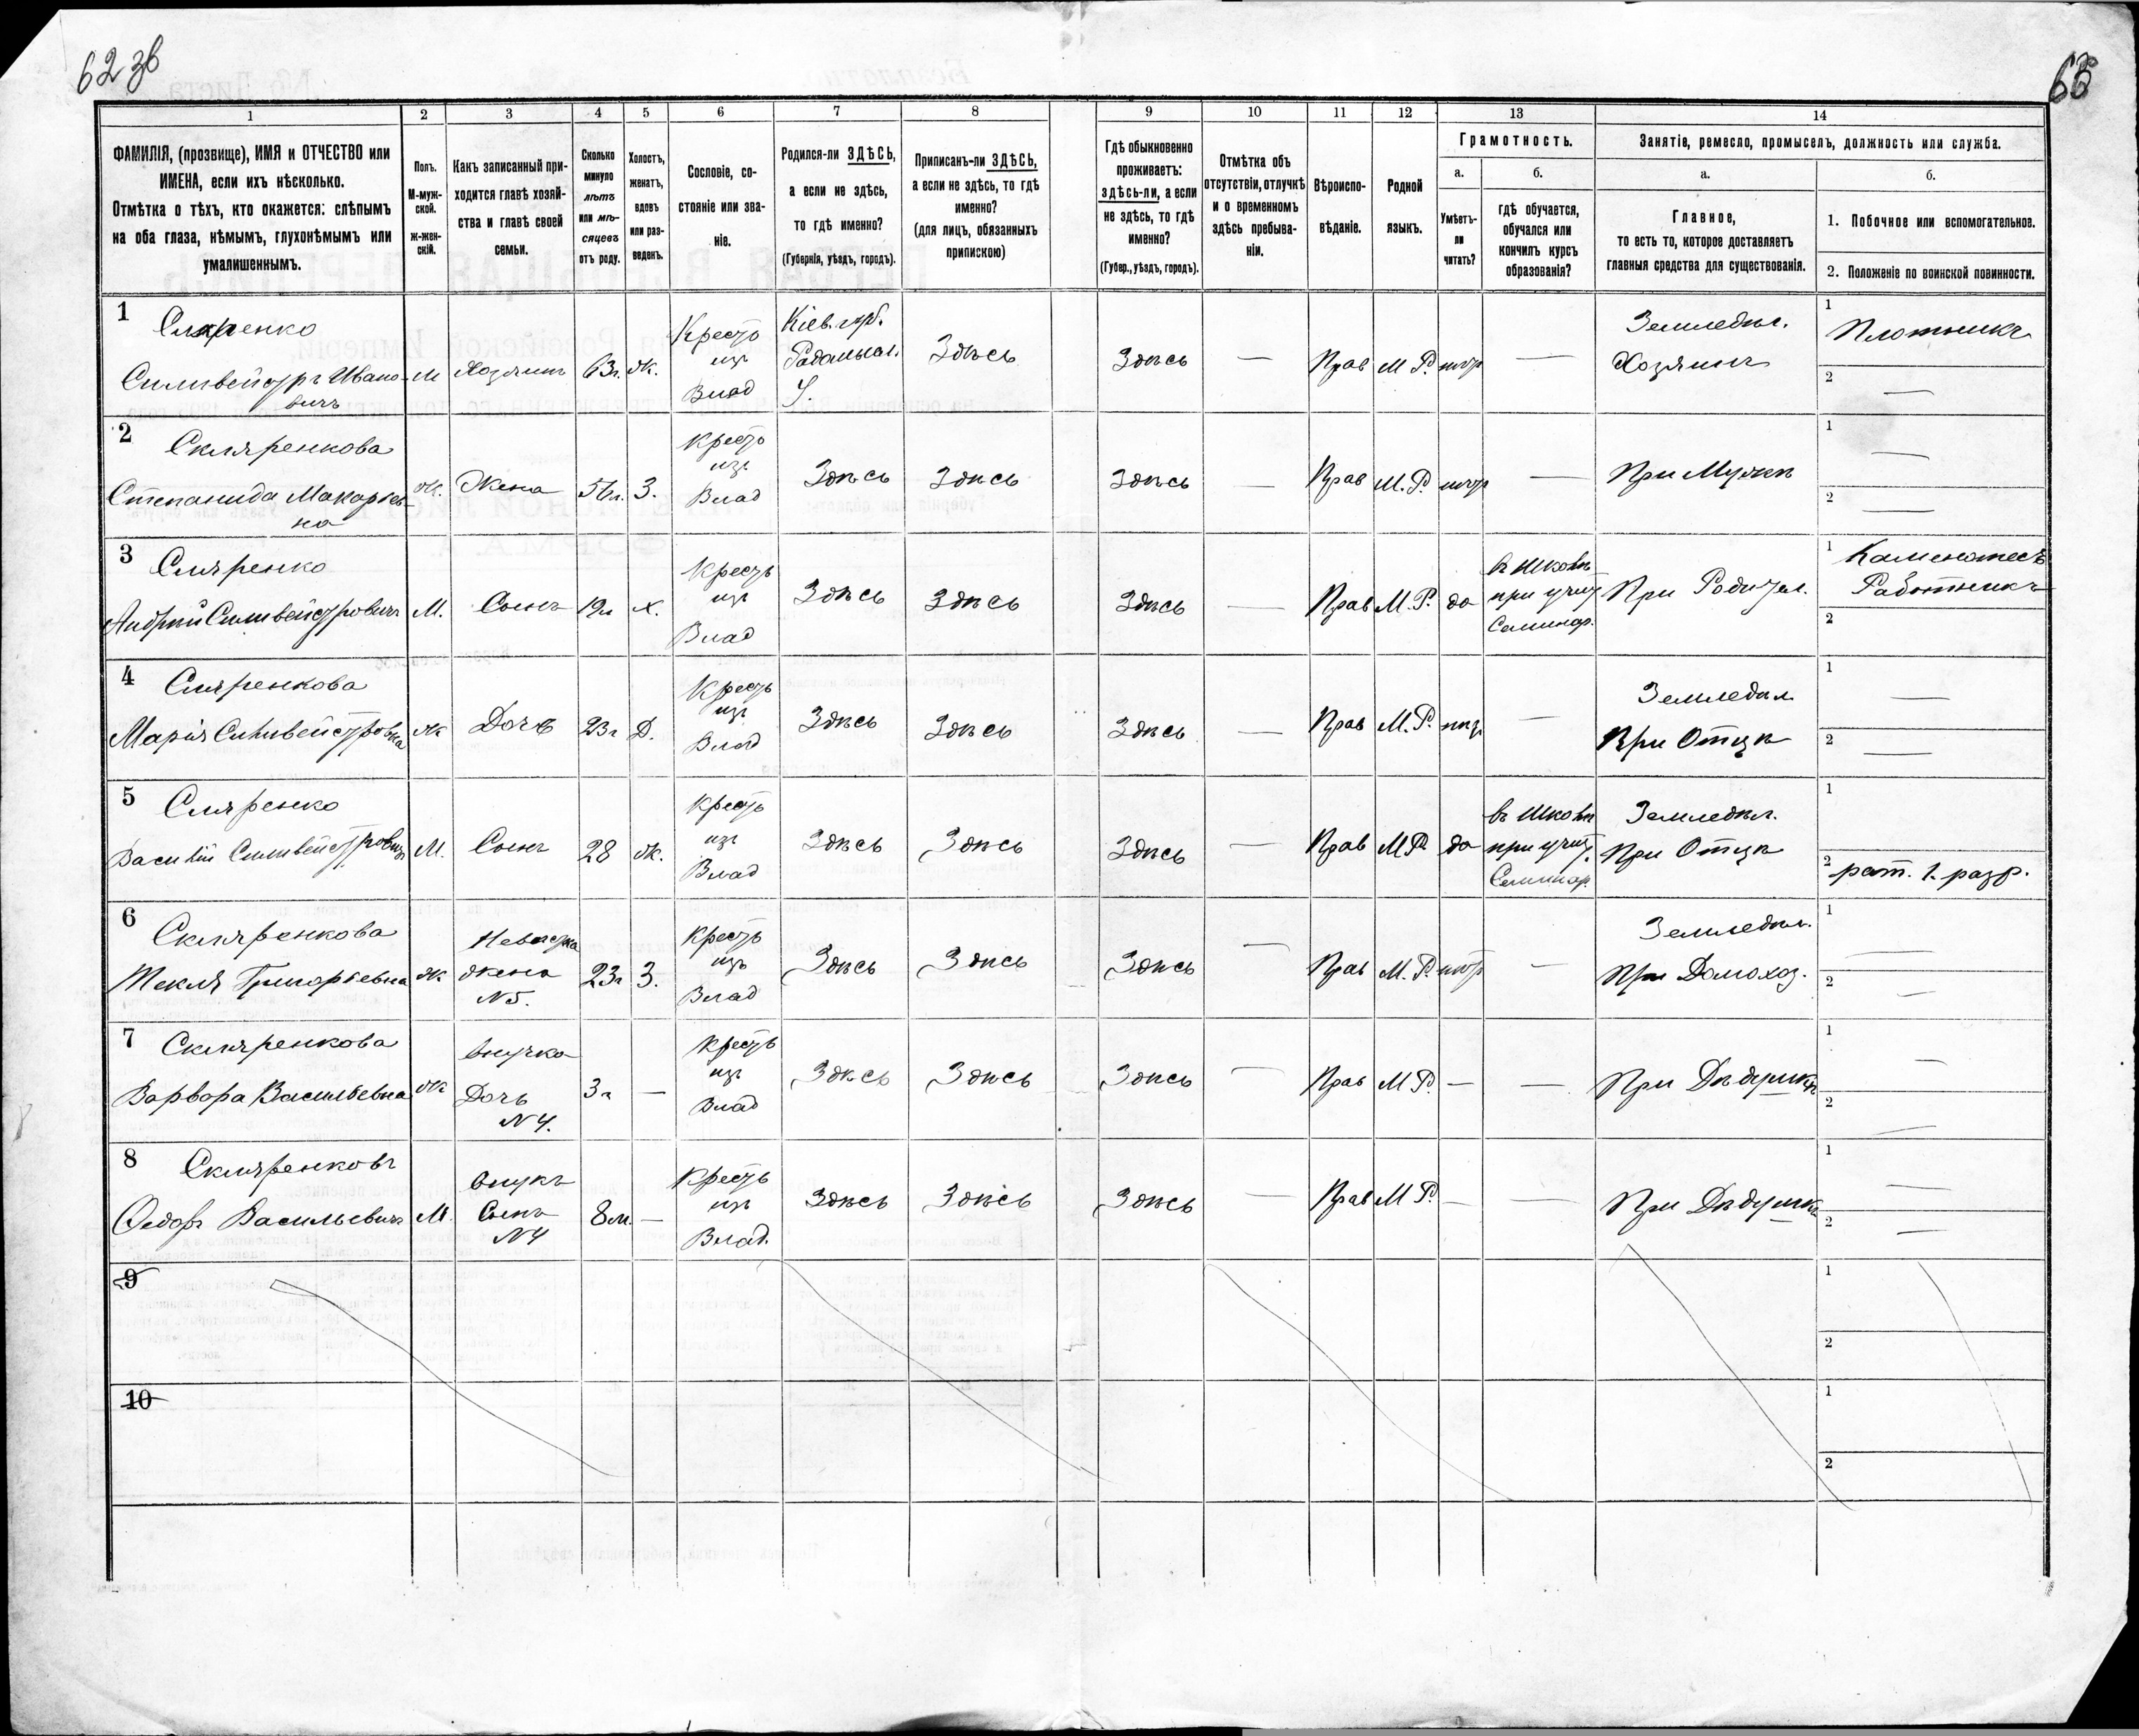 62 зв
63
1
2
3
4
5
6
7
8
9
10
11
12
13
14
ФАМИЛІЯ, (прозвище), ИМЯ и ОТЧЕСТВО или
ИМЕНА, если ихъ нѣсколько.
Отмѣтка о тѣхъ, кто окажется: слѣпымъ
на оба глаза, нѣмымъ, глухонѣмымъ или
умалишеннымъ.
Полъ.
М-муж-
ской.
Ж-жен-
скій.
Какъ записанный при-
ходится главѣ хозяй-
ства и главѣ своей
семьи.
Сколько
минуло
лѣтъ
или мѣ-
сяцевъ
отъ роду.
Холостъ,
женатъ,
вдовъ
или раз-
веденъ.
Сословіе, со-
стояніе или зва-
ніе.
Родился-ли ЗДѢСЬ,
а если не здѣсь,
то гдѣ именно?
(Губернія, уѣздъ, городъ).
Приписанъ-ли ЗДѢСЬ,
а если не здѣсь, то гдѣ
именно?
(для лицъ, обязанныхъ
припискою)
Гдѣ обыкновенно
проживаетъ:
здѣсь-ли, а если
не здѣсь, то гдѣ
именно?
(Губер., уѣздъ, городъ).
Отмѣтка объ
отсутствіи, отлучкѣ
и о временномъ
здѣсь пребыва-
ніи.
Вѣроиспо-
вѣданіе.
Родной
языкъ.
Грамотность.
а.
Умѣетъ-
ли
читать?
б.
гдѣ обучается,
обучался или
кончилъ курсъ
образованія?
Занятіе, ремесло, промыселъ, должность или служба.
а.
Главное,
то есть то, которое доставляетъ
главныя средства для существованія.
б.
1. Побочное или вспомогательное.
2. Положеніе по воинской повинности.
1
Скляренко
Сильвейстръ Ивано-
вичъ
М
Хозяинъ
63г.
ж.
Крестъ
изъ
Влад
Кіев. губ.
Радомысл.
У.
Здѣсь
Здѣсь
—
Прав
М Р.
нѣтъ
—
Земледѣл.
Хозяинъ
1
Плотникъ
2
—
2
Скляренкова
Степанида Макарьев-
на
Ж.
Жена
З.
Крестъ
изъ
Влад
Здѣсь
Здѣсь
Здѣсь
—
Прав
М. Р.
нѣтъ
—
При Мужѣ
1
—
2
—
3
Скляренко
Андрей Сильвейстровичъ
М.
Сынъ
19л
Х.
Крестъ
изъ
Влад
Здѣсь
Здѣсь
Здѣсь
—
Прав
М. Р.
да
въ Школѣ
при учит.
Семинар.
При Родител.
1
Каменотесъ
Работникъ
2
4
Скляренкова
Марія Сильвейстровна
Ж
Дочь
23г
Д.
Крестъ
изъ
Влад
Здѣсь
Здѣсь
Здѣсь
—
Прав
М. Р.
нѣт
—
Земледѣл
При Отцѣ
1
—
2
—
5
Скляренко
Василій Сильвейстрович
М.
Сынъ
28
ж.
Крестъ
изъ
Влад
Здѣсь
Здѣсь
Здѣсь
—
Прав
М Р
да
въ Школѣ
при учит.
Семинар.
Земледѣл.
При Отцѣ
1
2
рат. 1. разр.
6
Скляренкова
Текля Григорьевна
Ж
Невестка
жена
N 5.
23г
З.
Крестъ
изъ
Влад
Здѣсь
Здѣсь
Здѣсь
—
Прав
М. Р.
нѣтъ
—
Земледѣл.
При Домохоз.
1
—
2
—
7
Скляренкова
Варвора Васильевна
Ж
внучка
Дочь
N 4.
3г
—
Крестъ
изъ
Влад
Здѣсь
Здѣсь
Здѣсь
—
Прав
М Р.
—
—
При Дѣдушкѣ
1
—
2
—
8
Скляренковъ
Ѳедоръ Васильевичъ
М.
внукъ
Сынъ
N 4
8м.
—
Крестъ
изъ
Влад.
Здѣсь
Здѣсь
Здѣсь
—
Прав
М Р.
—
—
При Дѣдушкѣ
1
—
2
—
9
1
2
10
1
2